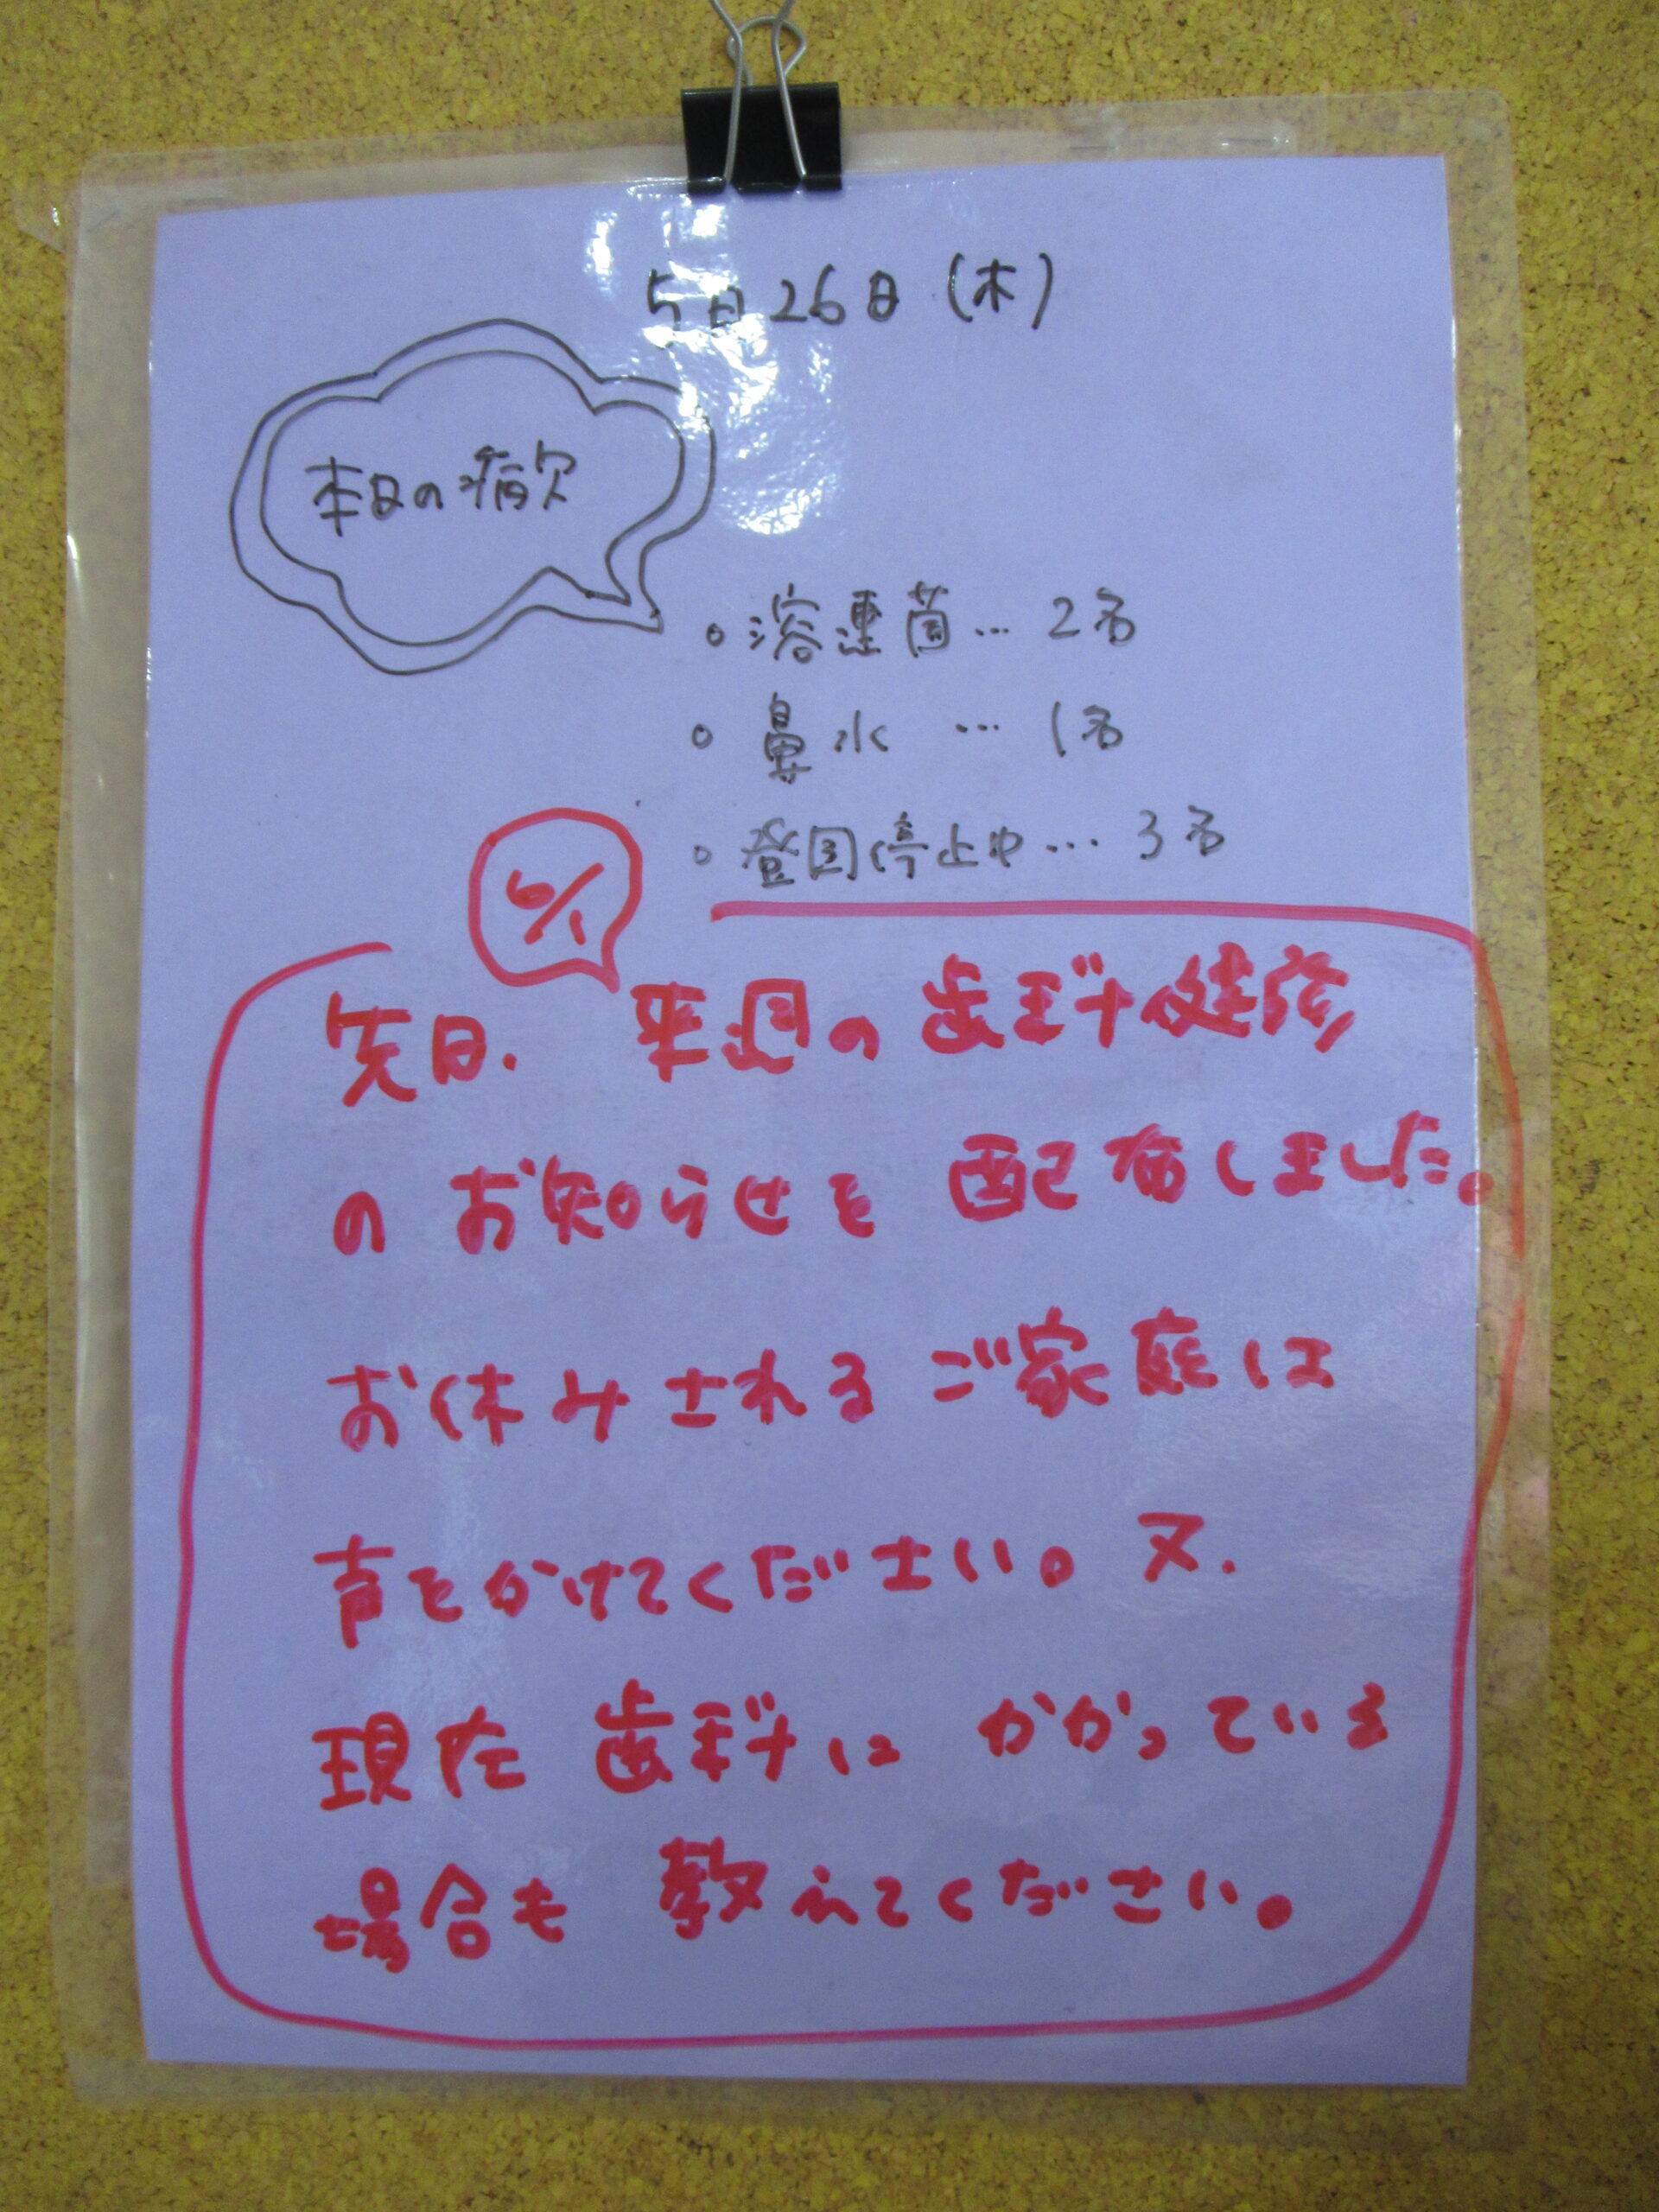 5月26日(木)
本日の病欠
。溶連菌… 2名
。鼻水 … 1名
。登園停止中… 3名
6/1
先日、来週の歯科健診
のお知らせを配布しました。
お休みされるご家庭は
声をかけてください。又、
現在歯科にかかっている
場合も教えてください。